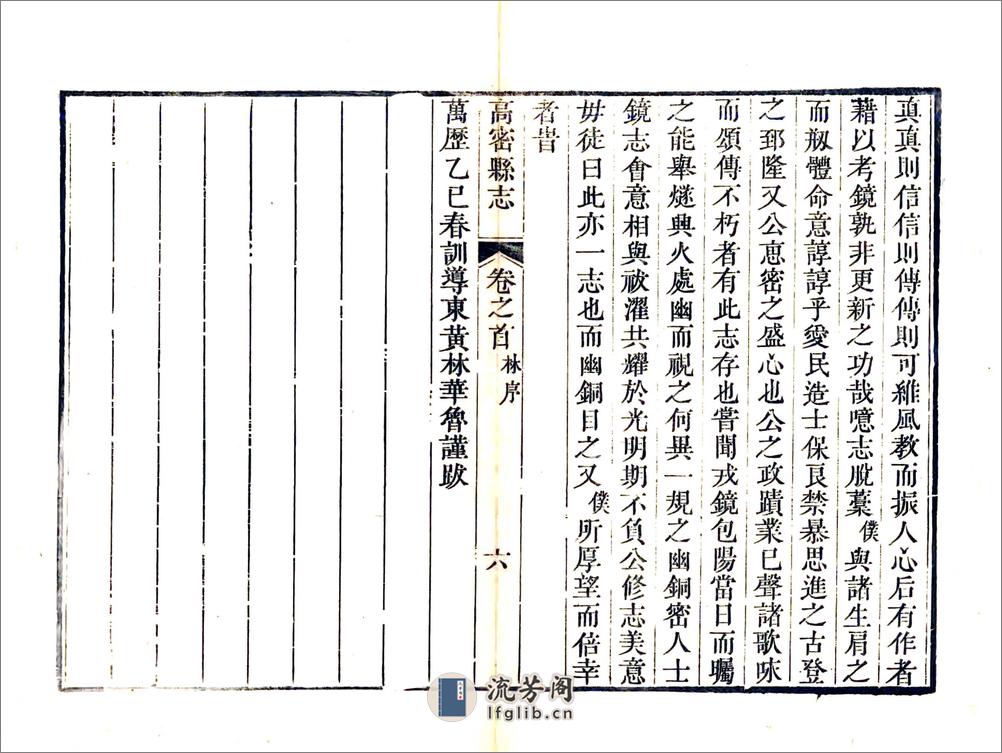 真真則信信則傳傳則可維風敎而振人心后有作者
藉以考鏡孰非更新之功哉噫志脫藁僕與諸生肩之
而剏體命意諄諄乎愛民造士保良禁暴思進之古登
之郅隆又公惠密之盛心也公之政蹟業已聲諸歌咏
而頌傳不朽者有此志存也嘗聞戎鏡包陽當日而矚
之能舉燧興火處幽而視之何異一規之幽銅密人士
鏡志會意相與祓濯共耀於光明期不負公修志美意
毋徒曰此亦一志也而幽銅目之又僕所厚望而倍幸
者旹
高密縣志
卷之首
林序
六
萬歷乙巳春訓導東黃林華魯謹跋
流芳阁
lfglib.cn